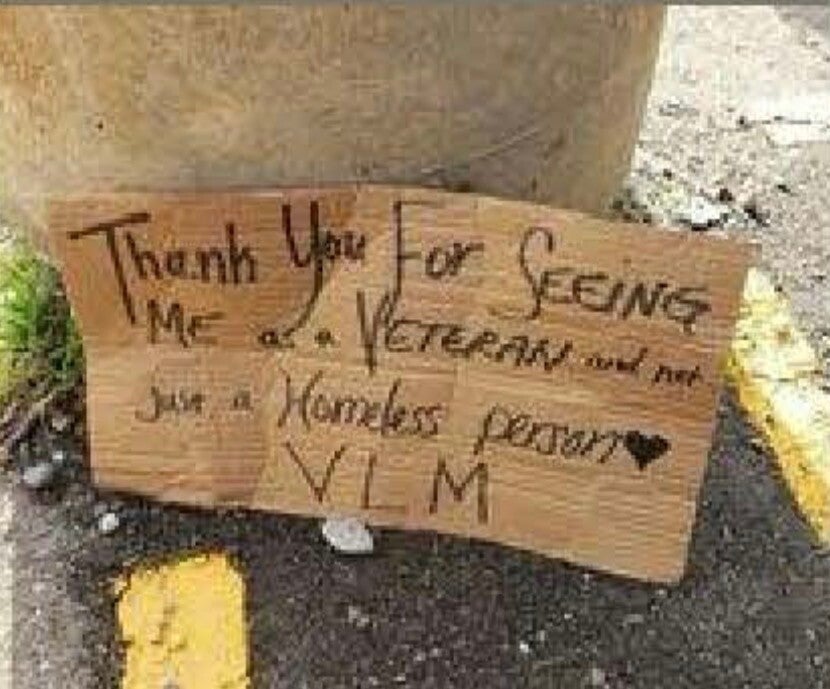 Thank You For SEEING
ME as a VETERAN and not
Just a Homeless person♥
VLM